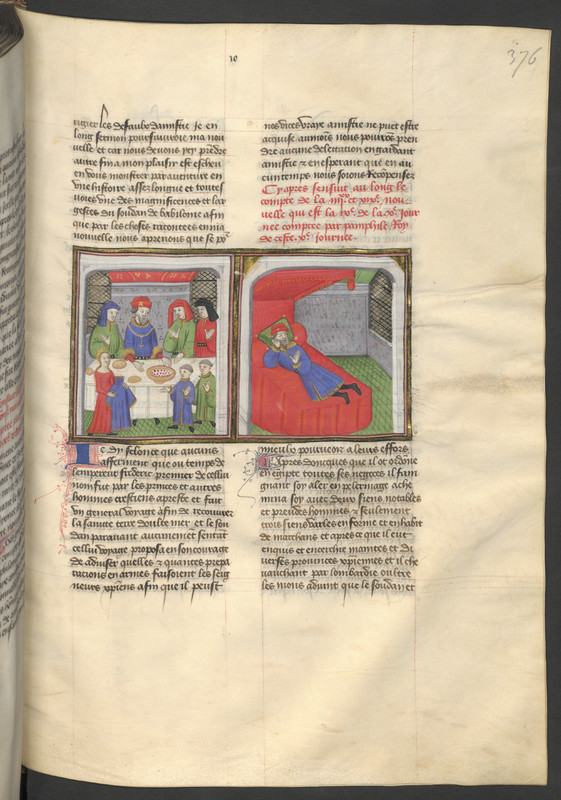 10
376
long sermon poursuivroie ma nou
velle et car nous devons icy prendre
autre fin a mon plaisir est escheu
en vous monstrer par aventure en
une histoire assez longue et toutes
voies une des magnificences et lar
gesses du soudan de babilone afin
que par les choses racontees en ma
nouvelle nous aprenons que se por
nos vices vraye amistie ne puet estre
acquise aumoins nous pourrons pren
dre aucune delectation en gardant
amistie et en esperant que en au
cun temps nous soions recopensez
Cy apres sensuit au long le
compte de la et xixe nou
velle qui est la ixe de la xe jour
nee comptee par pamphile Roy
de ceste xe journee.
Je dy selon ce que aucuns
afferment que ou temps de
lempereur frederic premier de cellui
nom fut par les princes et autres
hommes crestiens apreste et fait
un general voyage afin de recouvrer
la saincte terre doultre mer et le sou
dan paravant aucunement sentant
cellui voyage proposa en son courage
de adviser quelles et quantes prepa
racions en armes faisoient les seig
neurs xpiens afin que il peust
mieulx pourveoir a leurs effors
Apres doncques que il ot ordone
en egipte toutes ses negoces il fain
gnant soy aler en pelerinage ache
mina soy avec deux siens notables
et preudes hommes et seulement
trois siens varles en forme et en habit
de marchans et apres ce que il eut
enquis et encerchie maintes et di
verses provinces xpiennes et il che
vauchant par lombardie oultre
les mons advint que le soudan et